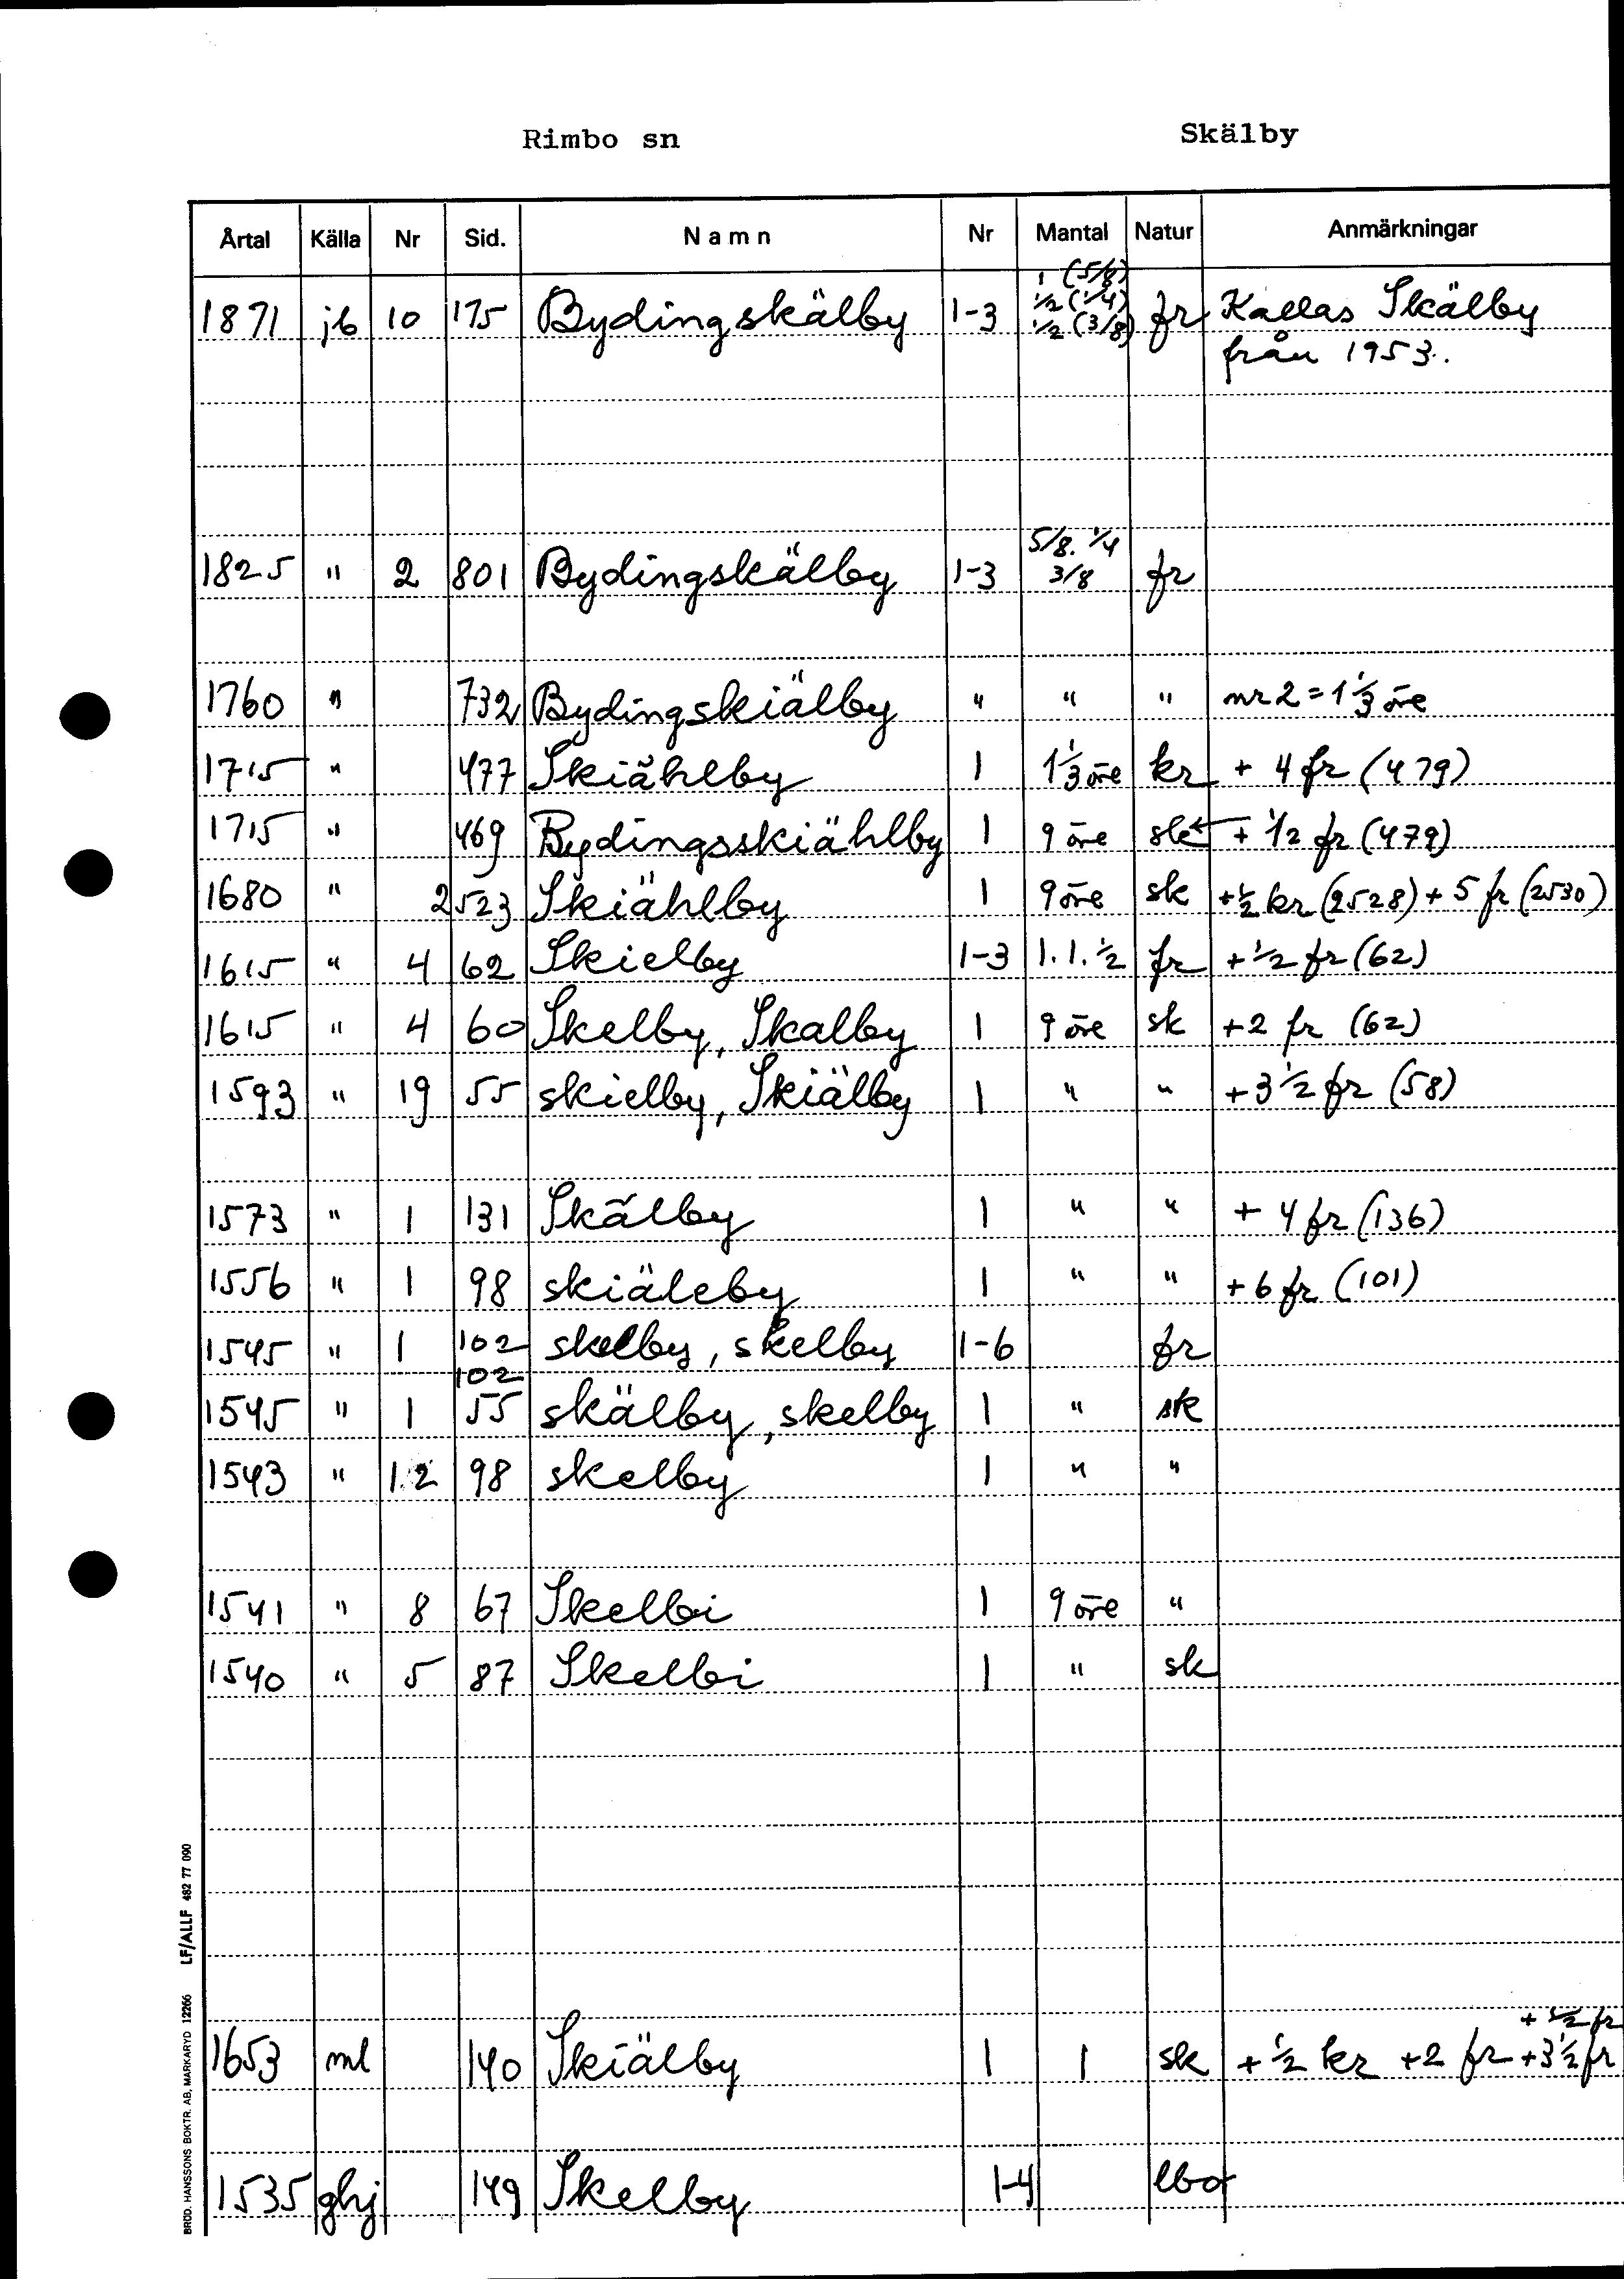 Rimbo sn Skälby
Årtal Källa Nr Sid. Namn Nr Mantal Natur Anmärkningar
1 (5/8)
1/2 (1/4)
1871 jb 10 175 Bydingskälby 1-3 1/2 (3/8) fr Kallas Skälby
från 1953.
5/8. 1/4
1825 " 2 801 Bydingskälby 1-3 3/8 fr
1760 " 732 Bydingskiälby " " " nr 2 = 1 1/3 öre
1715 " 477 Skiählby 1 1 1/3 öre kr + 4 fr (479)
1715 " 469 Bydingsskiählby 1 9 öre sk + 1/2 fr (479)
1680 " 2523 Skiählby 1 9 öre sk + 1/2 kr (2528) + 5 fr (2530)
1615 " 4 62 Skielby 1-3 1. 1. 1/2 fr + 1/2 fr (62)
1615 " 4 60 Skelby, Skalby 1 9 öre sk +2 fr (62)
1593 " 19 55 skielby, Skiälby 1 " " +3 1/2 fr (58)
1573 " 1 131 Skälby 1 " " + 4 fr (136)
1556 " 1 98 skiäleby 1 " " + 6 fr (101)
1545 " 1 102 skelby, skelby 1-6 fr
102
1545 " 1 55 skälby, skelby 1 " sk
1543 " 1.2 98 skelby 1 " "
1541 " 8 67 Skelbi 1 9 öre "
1540 " 5 87 Skelbi 1 " sk
+ 1/2 fr
1653 ml 140 Skiälby 1 1 sk + 1/2 kr +2 fr +3 1/2 fr
1535 ghj 149 Skelby 1-4
BRÖD. HANSSONS BOKTR. AB, MARKARYD 12266 LF/ALLF 482 77 090